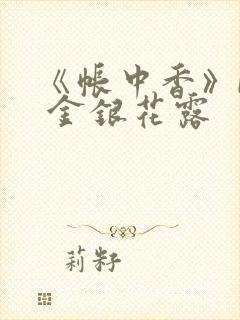 《帐中香》
金银花露
莉籽